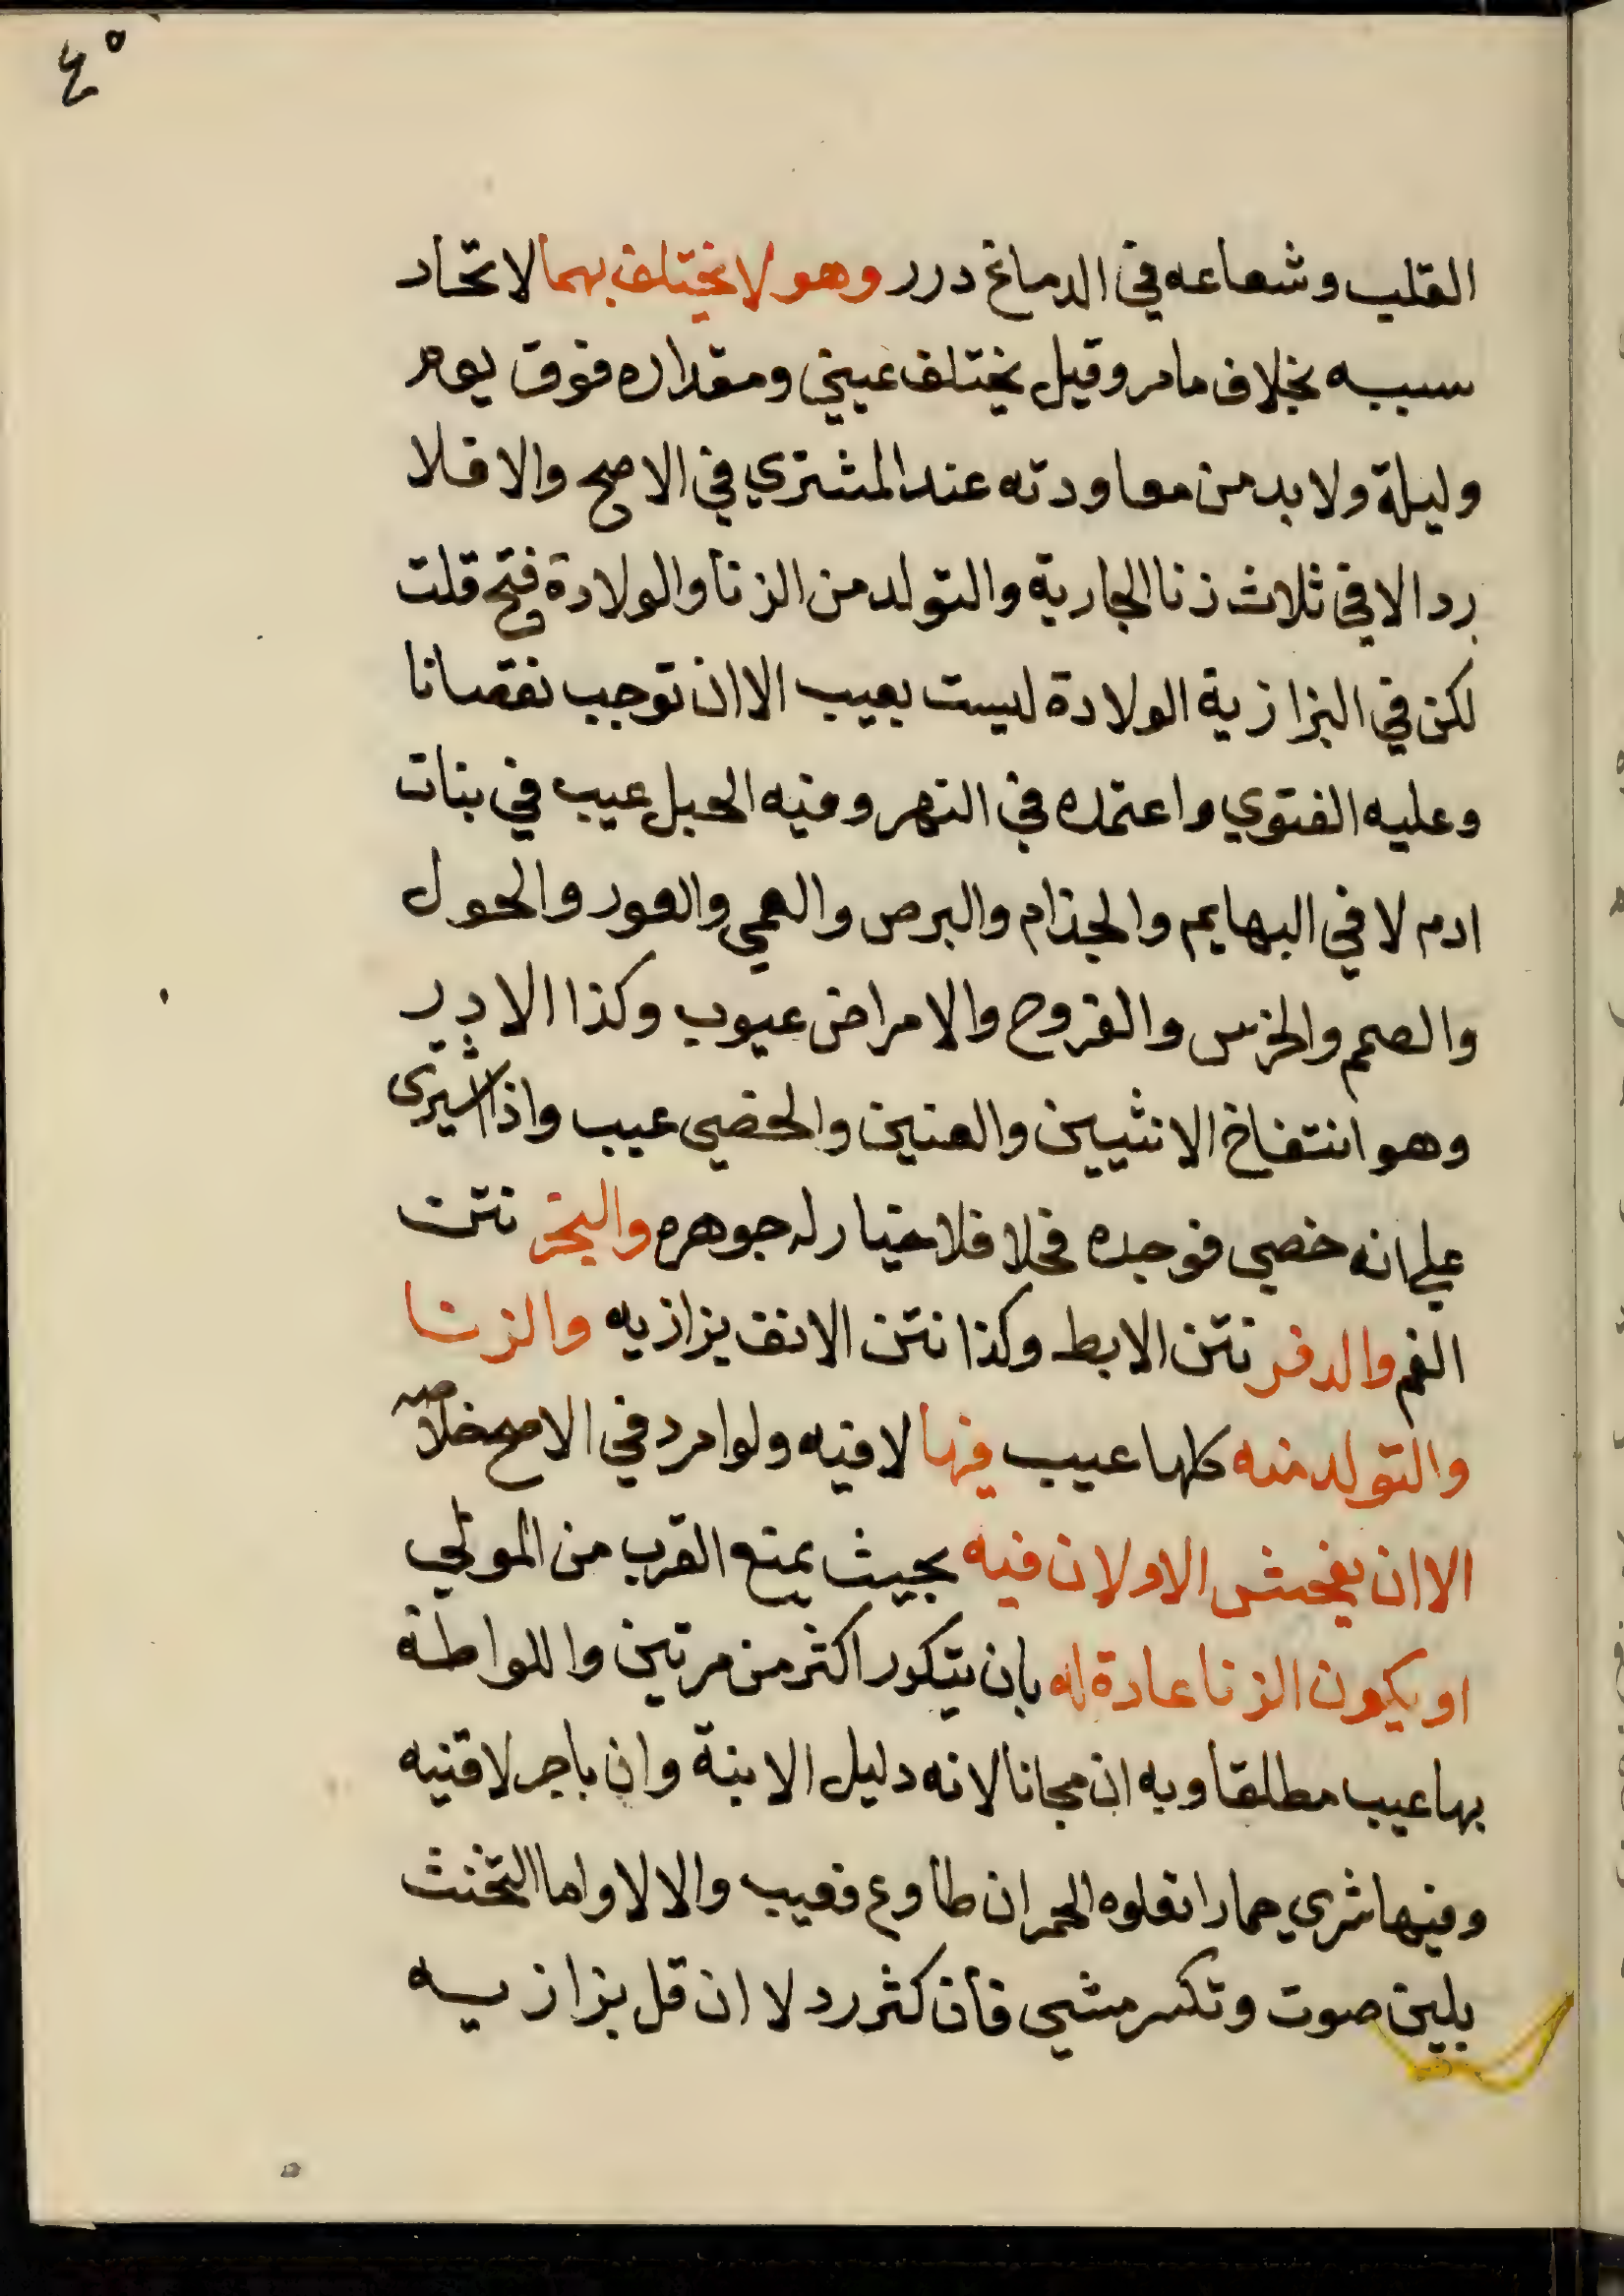 ٤٥
القلب وشعاعه في الدماغ درر وهو لا يختلف بهما لاتحاد
سببه بخلاف ما مر وقيل يختلف عيني ومقداره فوق يوم
وليلة ولا بد من معاودته عند المشتري في الاصح والا فلا
رد الا في ثلاث زنا الجارية والتولد من الزنا والولادة فتح قلت
لكن في البزازية الولادة ليست بعيب الا ان توجب نقصانا
وعليه الفتوي واعتمده في النهر وفيه الحبل عيب في بنات
ادم لا في البهايم والجذام والبرص والعمي والعور والحول
والصمم والخرس والقروح والامراض عيوب وكذا الادر
وهو انتفاخ الانثيين والعنين والخصي عيب واذا اشترى
علي انه خصي فوجده فحلا فلا خيار له جوهره والبخر نتن
الفم والدفر نتن الابط وكذا نتن الانف بزازيه والزنا
والتولد منه كلها عيب فيها لا فيه ولو امرد في الاصح خلاصه
الا ان يفحش الاولان فيه بحيث يمنع القرب من المولي
او يكون الزنا عادة له بان يتكرر اكثر من مرتين واللواطة
بها عيب مطلقا وبه ان مجانا لانه دليل الابنة وان باجر لا قنيه
وفيها شري حمارا تعلوه الحمر ان طاوع فعيب والا لا واما التخنث
بلين صوت وتكسر مشي فان كثر رد لا ان قل بزازيه